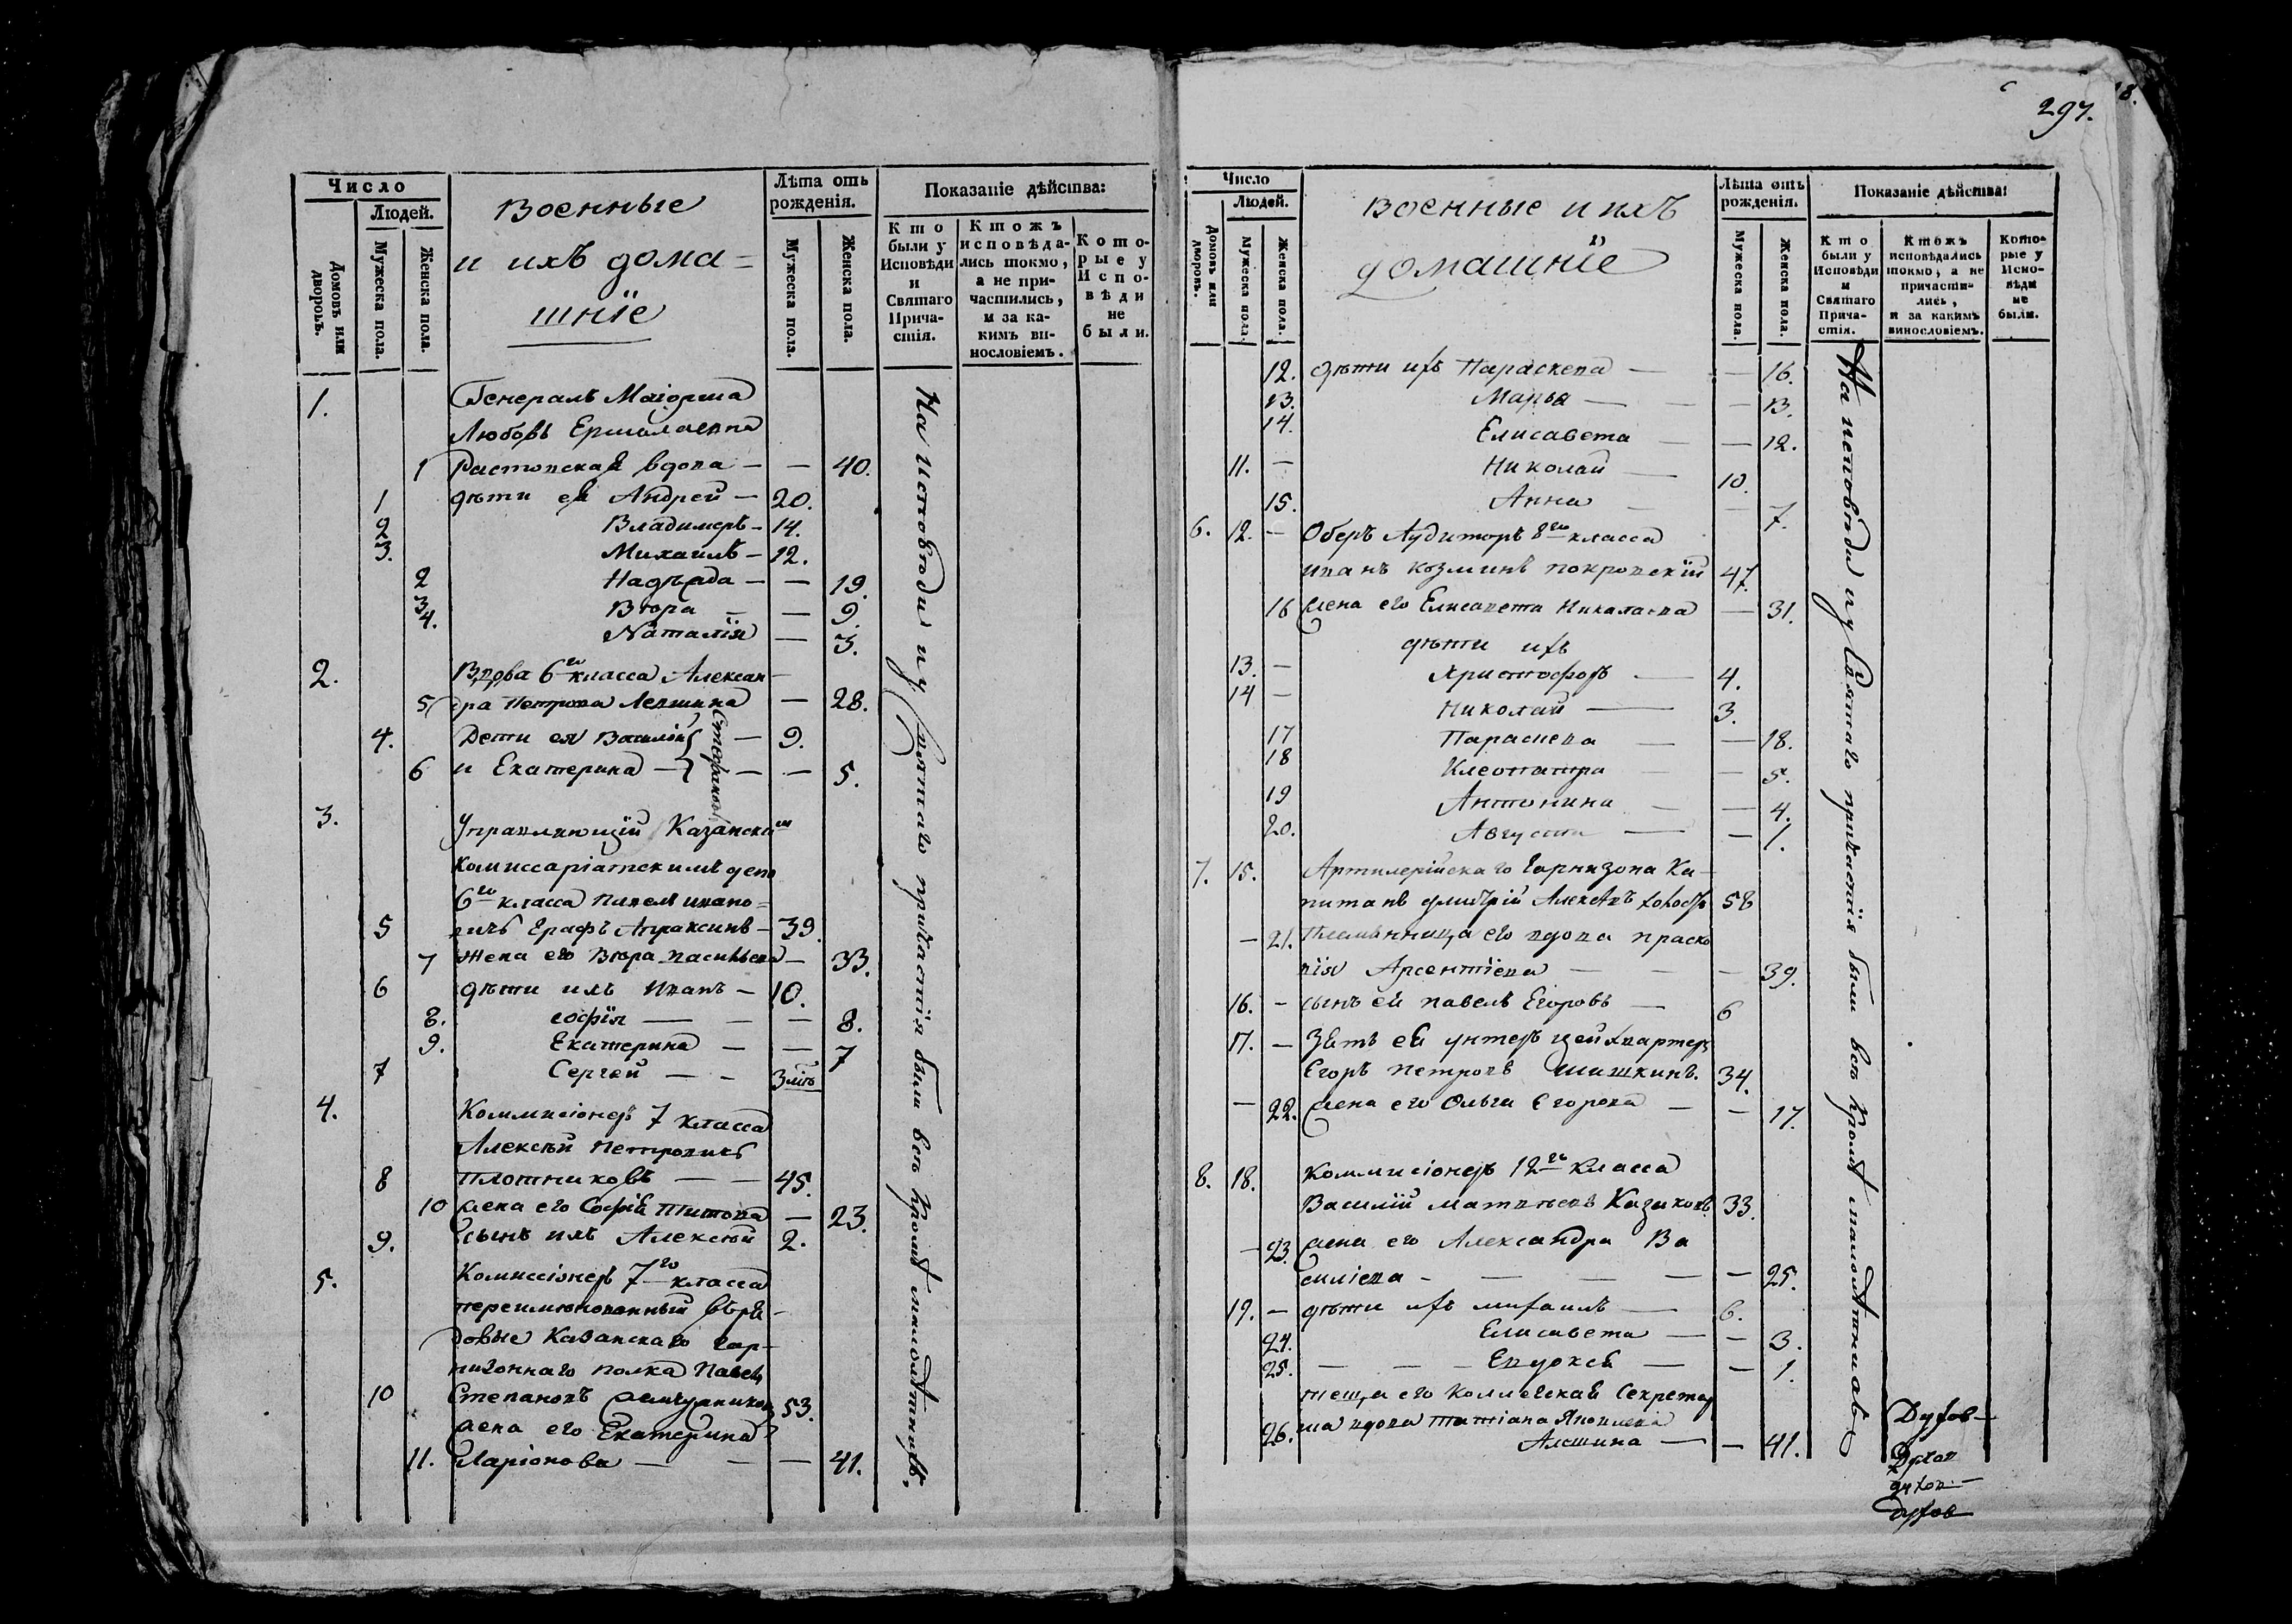 297.
18.
Число
Людей.
Домовъ или дворовъ.
Мужеска пола.
Женска пола.
Военные
и ихъ дома=
шнїе
Лѣта отъ рожденія.
Мужеска пола.
Женска пола.
Показаніе дѣйства:
Кто были у Исповѣди и Святаго Прича-стія.
Ктожъ исповѣда-лись токмо, а не при-частились, и за ка-кимъ ви-нословіемъ.
Кото-рые у Испо-вѣди не были.
1. Генералъ Маіорша
Любовь Ермолаевна
1 Растовская вдова — — 40.
1 дѣти ея Андрей — 20.
2 Владимеръ — 14.
3. Михаилъ — 12.
2 Надѣжда — — 19.
3 Вѣра — — 9.
4. Наталія — 3.
2. Вдова 6го класса Алексан-
5 дра Петрова Левшина — 28.
4. Дети ея Василій — 9.
6 и Екатерина — — — 5.
3. Управляющій Казанским
Комиссаріатскимъ депо
6го класса Павелъ Ивано=
5 вичъ Графъ Апраксинъ — 39.
7 Жена его Вѣра Васильева — 33.
6 дѣти ихъ Иванъ — 10.
8. Софїя — — — 8.
9. Екатерина — — 7
7 Сергей — — 3
4. Коммисіонеръ 7 класса
Алексѣй Петровичъ
8 Плотниковъ — — 45.
10 жена его Софія Титова — 23.
9. Сынъ ихъ Алексѣй 2.
5. Комиссіонеръ 7го класса
въ ря-
довые Казанскаго гар-
низоннаго полка Павелъ
10 Степановъ 53.
жена его Екатерина
11. Иларіонова — — — 41.
На исповѣди и у Святаго причастія были всѣ кромѣ малолѣтнихъ.
Число
Людей.
Домовъ или дворовъ.
Мужеска пола.
Женска пола.
Военные и ихъ
домашніе
Лѣта отъ рожденія.
Мужеска пола.
Женска пола.
Показаніе дѣйства:
Кто были у Исповѣди и Святаго Прича-стія.
Ктожъ исповѣдались токмо, а не причасти-лись, и за какимъ винословіемъ.
Кото-рые у Испо-вѣди не были.
12. дѣти ихъ Параскева — — 16.
13. Марья — — — 13.
14. Елисавета — — 12.
11. — Николай — 10.
15. Анна — — 7.
6. 12. — Оберъ Аудиторъ 8го класса
Иванъ Козминъ Покровскїй 47.
16 жена его Елисавета Николаева — 31.
дѣти ихъ
13. — Христофоръ — 4.
14 — Николай — 3.
17 Параскева — — 18.
18 Клеопатра — — 5.
19 Антонина — — 4.
20. Августа — — 1.
7. 15. Артилерійскаго Гарнизона Ка-
питанъ Дмитрій 58
— 21. Племянница его вдова Праско
вія Арсентїева — — — 39.
16. — сынъ ей Павелъ Егоровъ — 6
17. — Зять ей унтеръ цейхвартеръ
Егоръ Петровъ Шишкинъ. 34.
— 22. жена его Ольга Егорова — — 17.
8. 18. Коммисіонеръ 12го класса
Василїй Матвѣевъ 33.
— 23. жена его Александра Ва
силіева — — — — — 25.
19. — дѣти ихъ Михаилъ — 6.
24. Елисавета — — 3.
25. — — — Евдокся — — 1.
теща его Коллежская Секретар
26. ша вдова Татіана Яковлева
Алешина — — 41.
На исповѣди и у Святаго причастія были всѣ кромѣ малолѣтнихъ
Духов—
Духов
духов—
духов